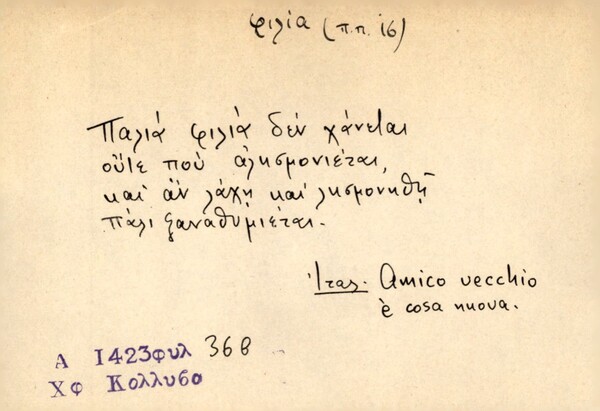 φιλία (π.π. 16)
Παλιά φιλιά δέν χάνεται
οὔτε πού ἀλησμονιέται,
καί ἄν λάχῃ καί λησμονηθῇ
πάλι ξαναθυμιέται.
Ἰταλ. Amico vecchio
è cosa nuova.
Α 1423φυλ 368
ΧΦ Κολλυβα